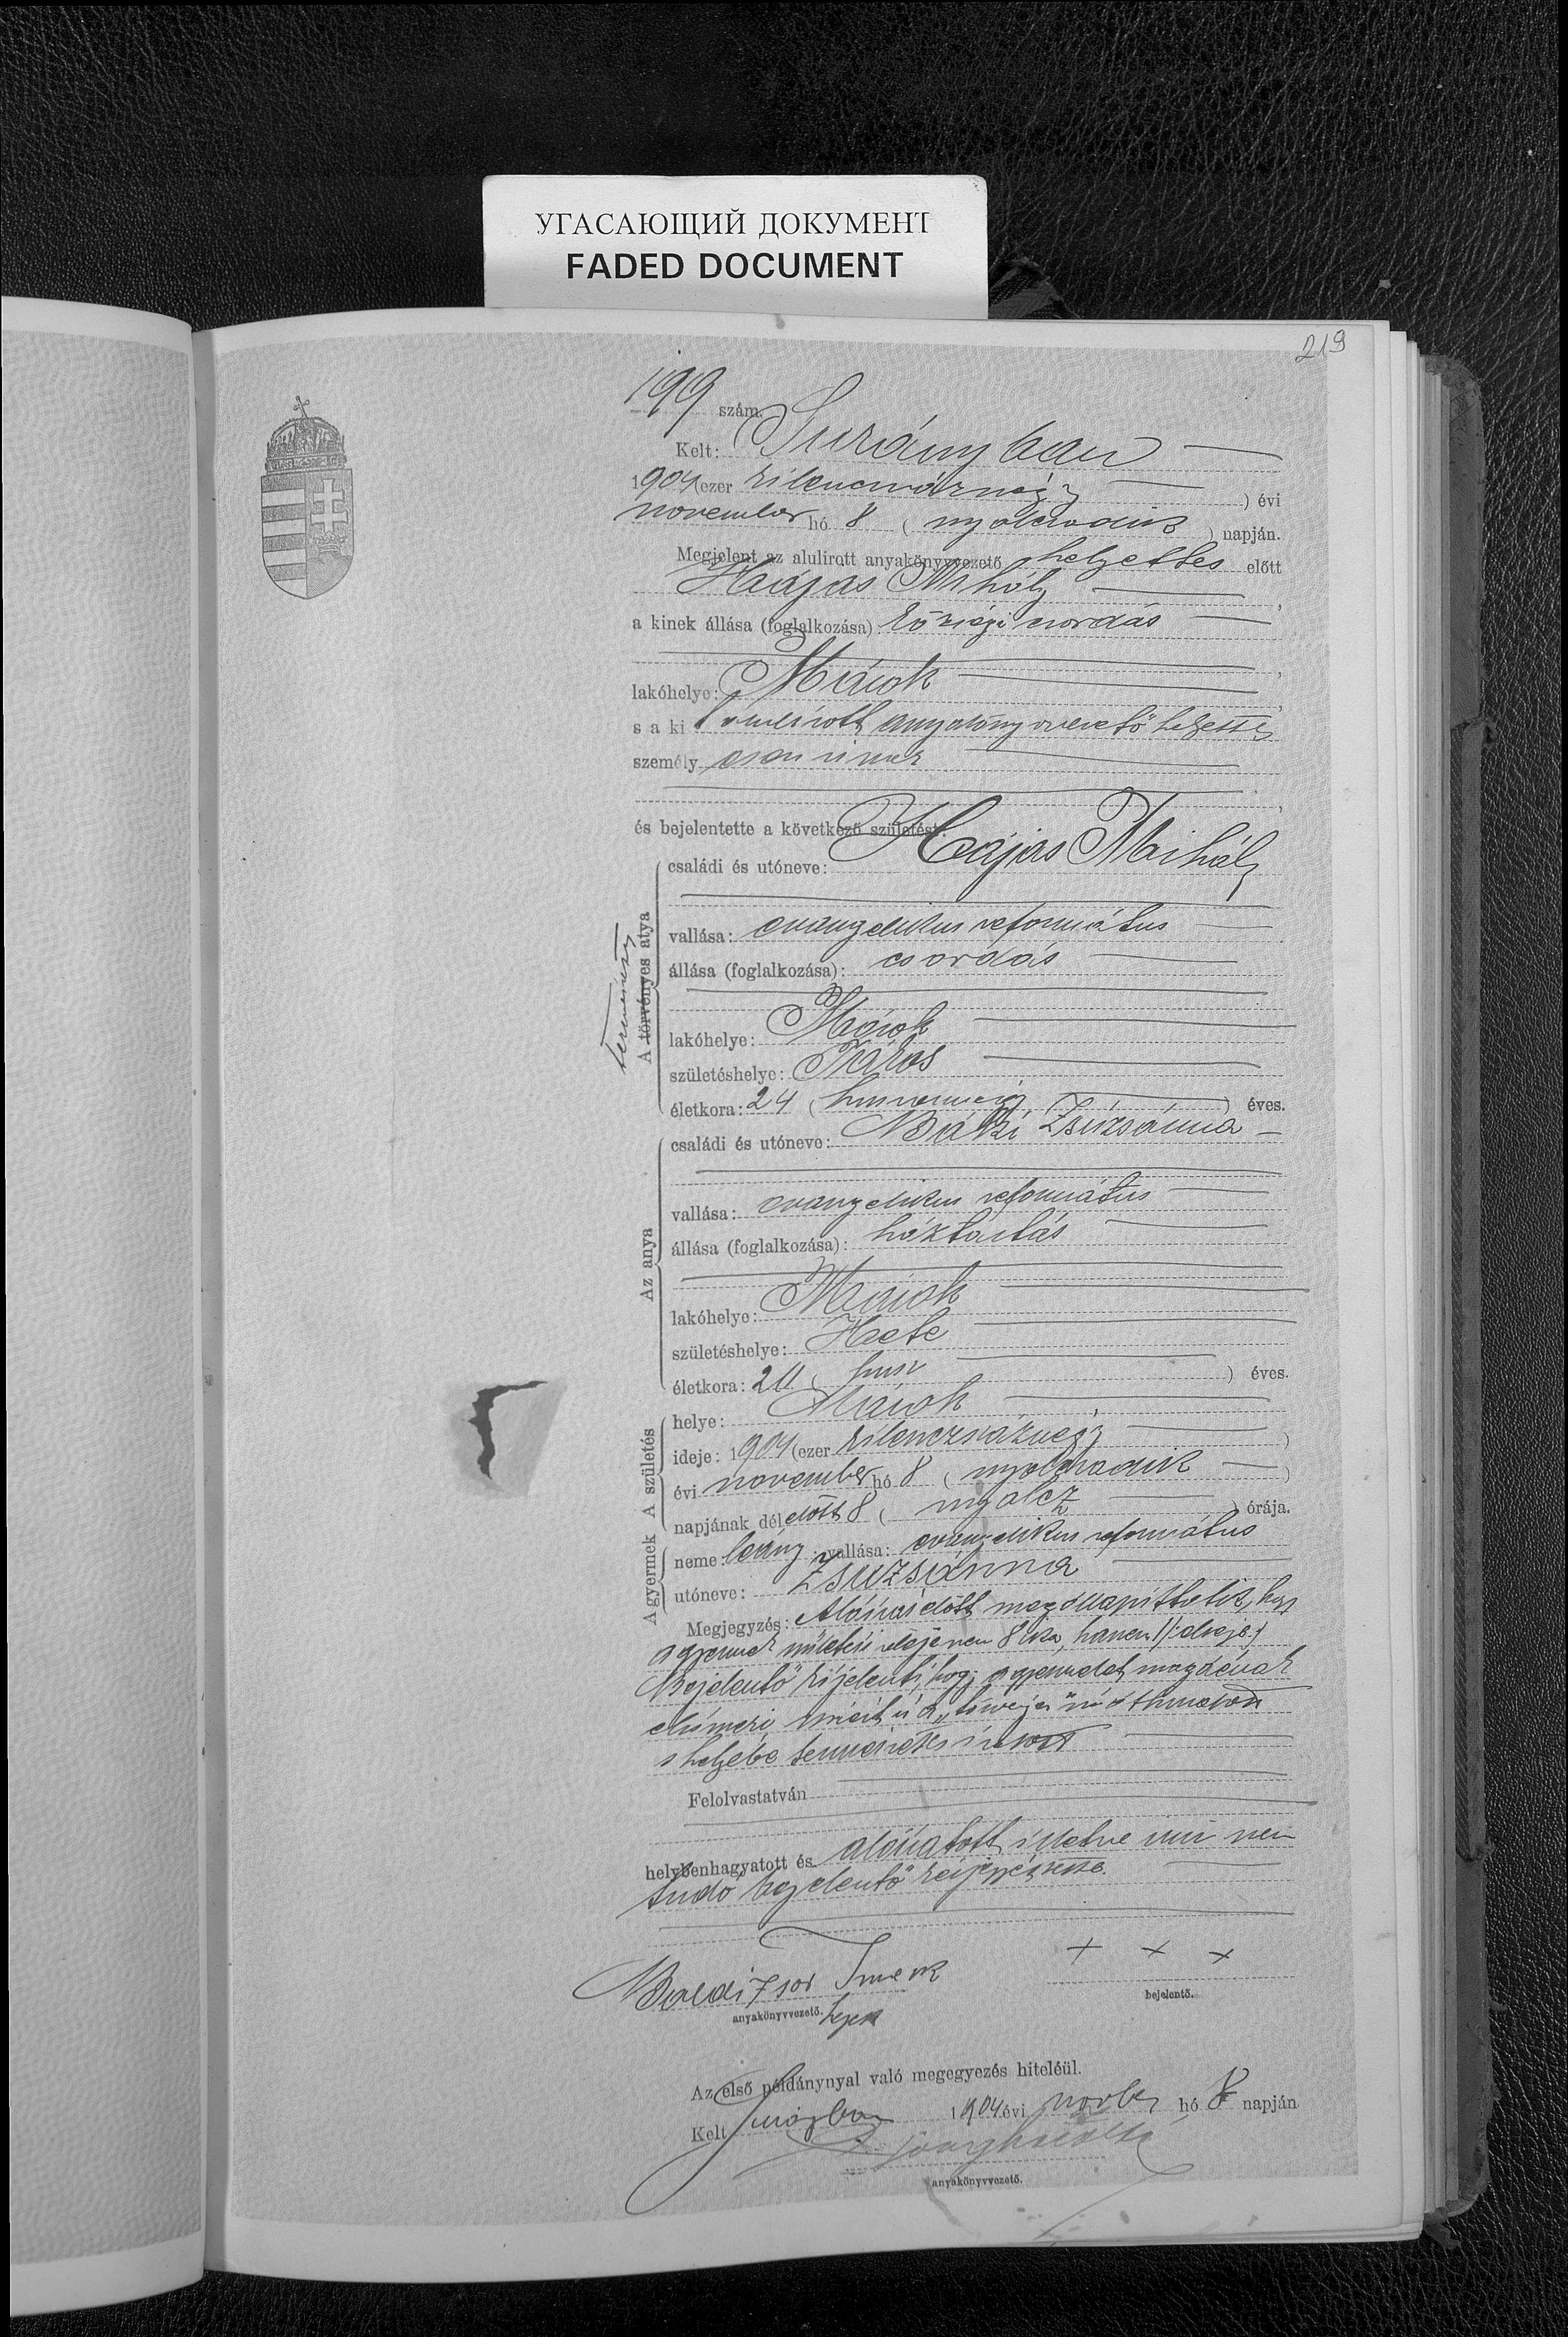 УГАСАЮЩИЙ ДОКУМЕНТ
FADED DOCUMENT
219
199 szám.
Kelt: Surányban
1904 (ezer kilencszáznégy) évi
november hó 8 (nyolczadik) napján.
Megjelent az alulirott anyakönyvvezető helyettes előtt
Hájas Mihály,
a kinek állása (foglalkozása): községi csordás
lakóhelye: Márok
s a ki alulírott anyakönyvvezető helyettes
személyesen ismer
és bejelentette a következő születést:
A törvényes atya
természetes
családi és utóneve: Hajas Mihály
vallása: evangelikus református
állása (foglalkozása): csordás
lakóhelye: Márok
születéshelye: Káros
életkora: 24 (husznonnégy) éves.
Az anya
családi és utóneve: Zsuzsánna
vallása: evangelikus református
állása (foglalkozása): háztartás
lakóhelye: Márok
születéshelye: Hete
életkora: 20 (husz) éves.
A születés
helye: Márok
ideje: 1904 (ezer kilenczszáznégy)
évi november hó 8 (nyolczadik)
napjának délelőtt 8 (nyolcz) órája.
A gyermek
neme: leány; vallása: evangelikus református
utóneve: Zsuzsánna
Megjegyzés: Aláírás előtt megállapíttatik, hogy
a gyermek születési ideje nem 8ika, hanem
Bejelentő kijelenti, hogy a gyermeket magáénak
elismeri, miért is a „törvényes" szó töröltetett
s helyébe természetes íratott
Felolvastatván
helybenhagyatott és aláíratott illetve írni nem
tudó bejelentő kézjegyével
Boldizsár Imre
anyakönyvvezető. helyettes
+ + +
bejelentő.
Az első példánynyal való megegyezés hiteléül.
Kelt Surányban 1904 évi novbr hó 8 napján
anyakönyvvezető.